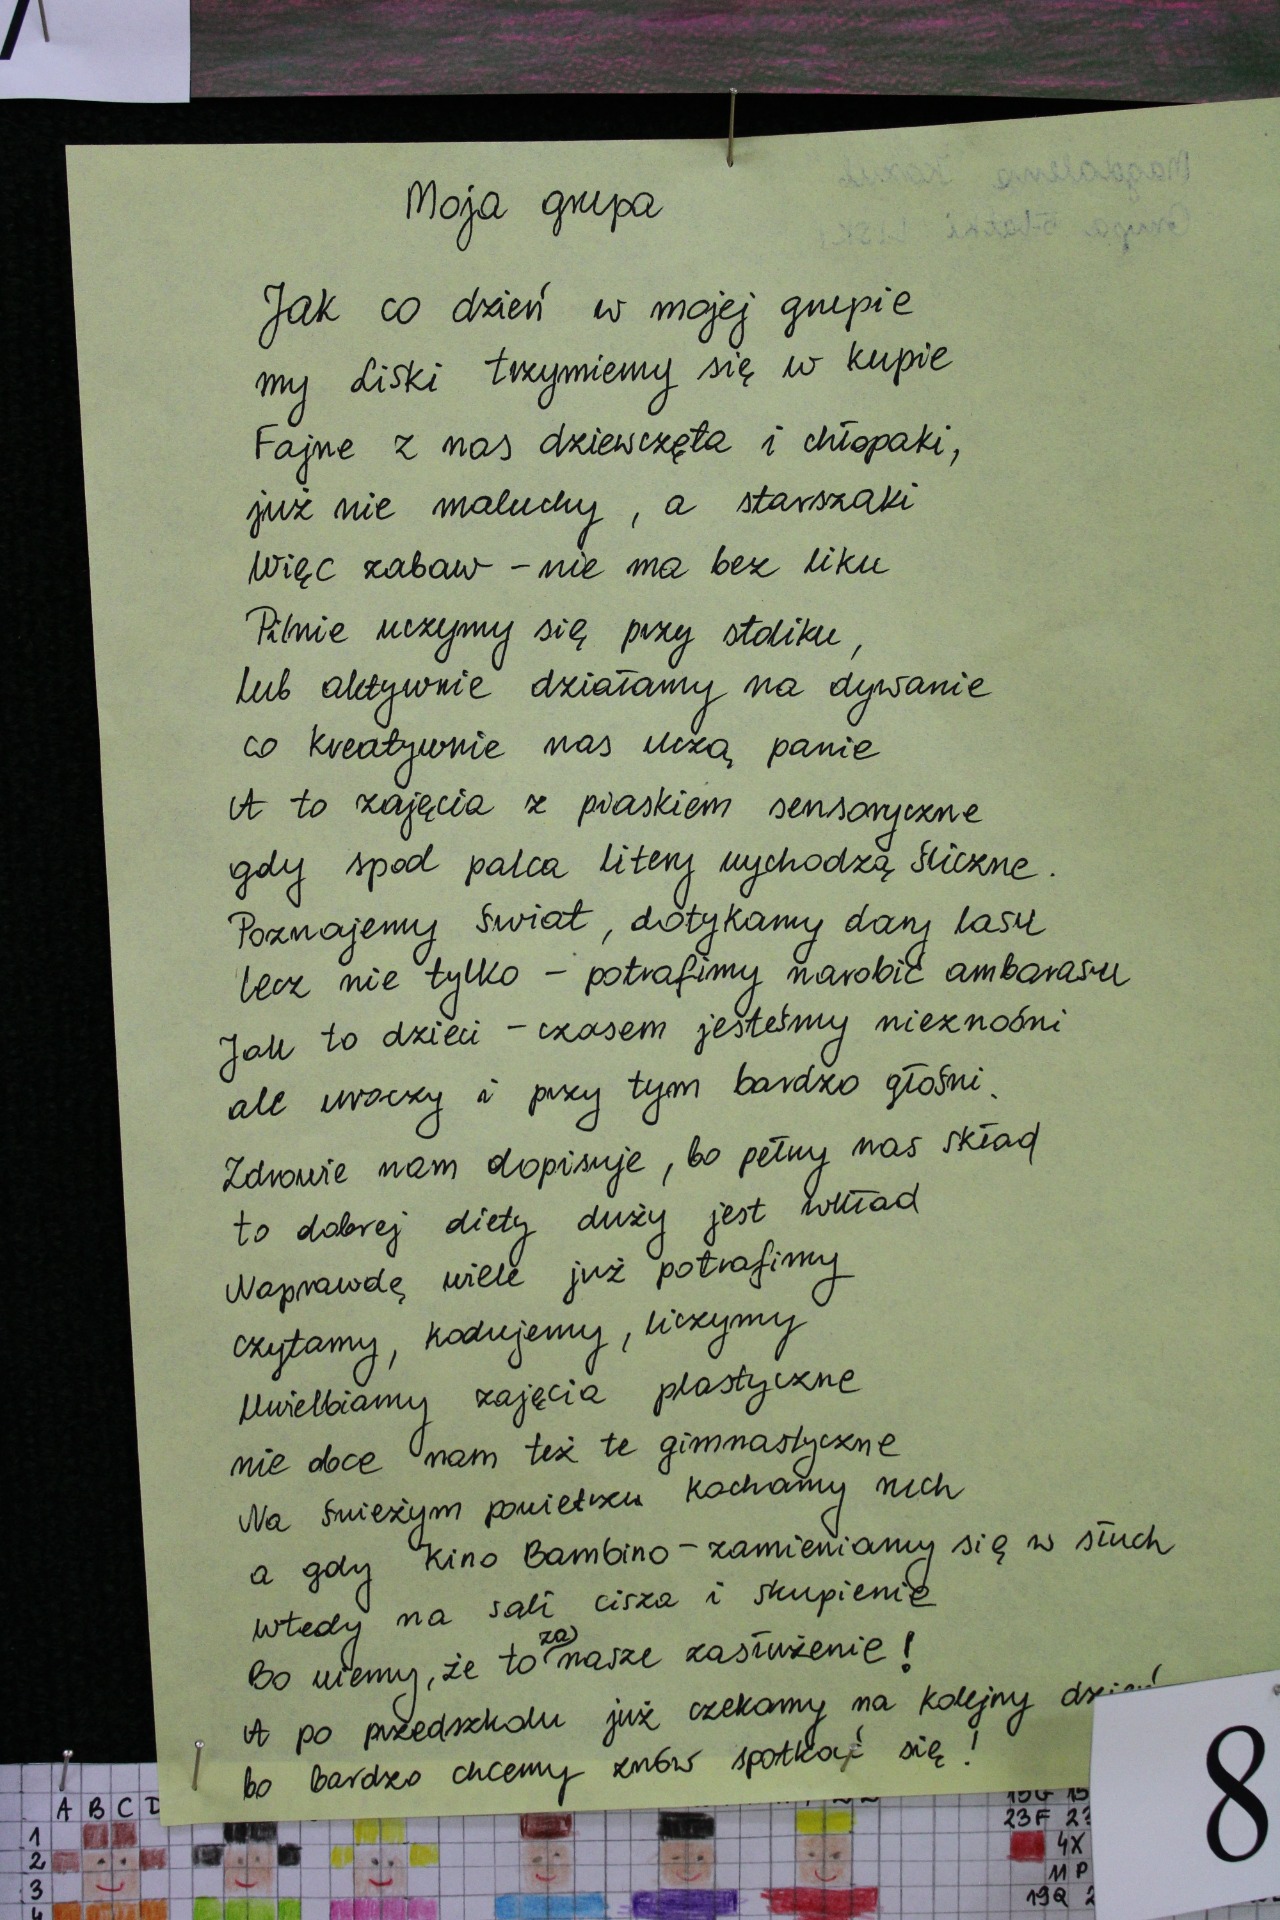 Moja grupa
Jak co dzień w mojej grupie
my Liski trzymiemy się w kupie
Fajne z nas dziewczęta i chłopaki,
już nie maluchy, a starszaki
Więc zabaw - nie ma bez liku
Pilnie uczymy się przy stoliku,
lub aktywnie działamy na dywanie
co kreatywnie nas uczą panie
A to zajęcia z piaskiem sensoryczne
gdy spod palca litery wychodzą śliczne.
Poznajemy świat, dotykamy dary lasu
lecz nie tylko - potrafimy narobić ambarasu
Jak to dzieci - czasem jesteśmy nieznośni
ale uroczy i przy tym bardzo głośni.
Zdrowie nam dopisuje, bo pełny nas skład
to dobrej diety duży jest wkład
Naprawdę wiele już potrafimy
czytamy, kodujemy, liczymy
Uwielbiamy zajęcia plastyczne
nie obce nam też te gimnastyczne
Na świeżym powietrzu kochamy ruch
a gdy Kino Bambino - zamieniamy się w słuch
wtedy na sali cisza i skupienie
Bo wiemy, że to za nasze zasłużenie!
A po przedszkolu już czekamy na kolejny dzień
bo bardzo chcemy znów spotkać się!
8
A B C D
1
2
3
4
23F
4X
11 P
19Q